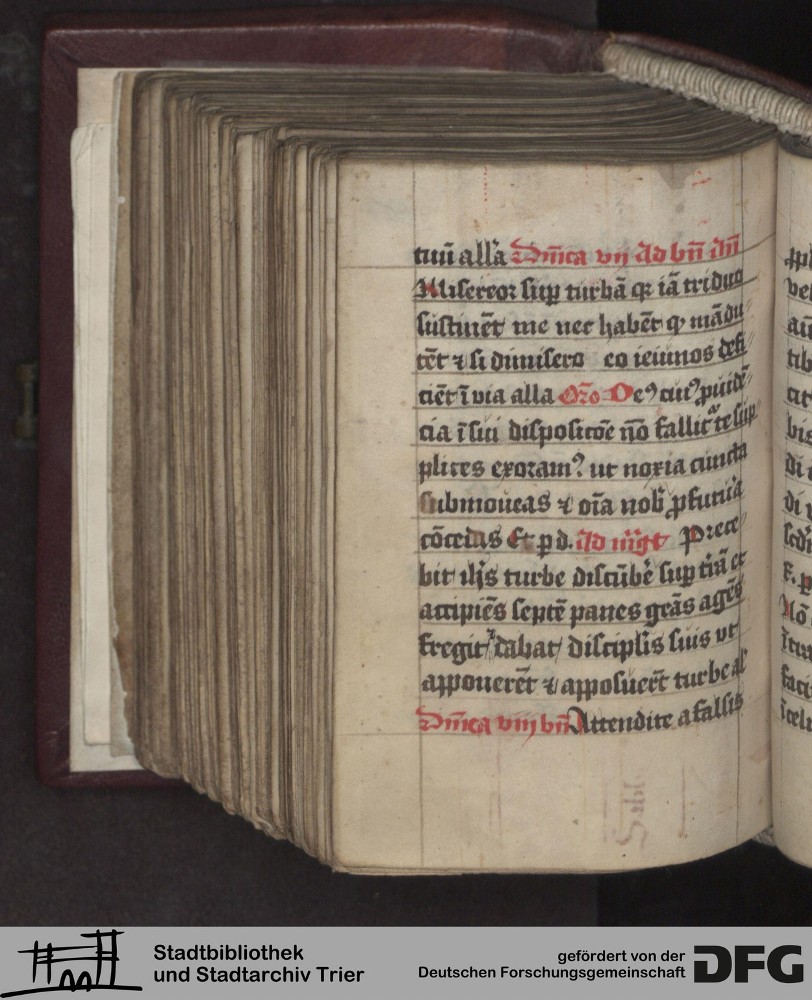 tuū all'a Dn̄ica vij Ad bn̄ an̄
Misereor sup turbā qr iā triduo
sustinēt me nec habēt q mādu
cēt ⁊ si dimisero eo ieiunos defi
ciēt ī via alla Oro De9 cui9 puidē
cia ī sui dispositōe nō fallit te sup
plices exoram9 ut noxia cuncta
submoueas ⁊ oīa nob pfutura
cōcedas Et p d. Ad mgt Prece
bit ihs turbe discūbē sup trā et
accipiēs septē panes grās agēs
fregit dabat disciplis suis ut
apponerēt ⁊ apposuert turbe al
Dn̄ica viij bn̄ Attendite a falsis
Stadtbibliothek
und Stadtarchiv Trier
gefördert von der
Deutschen Forschungsgemeinschaft
DFG